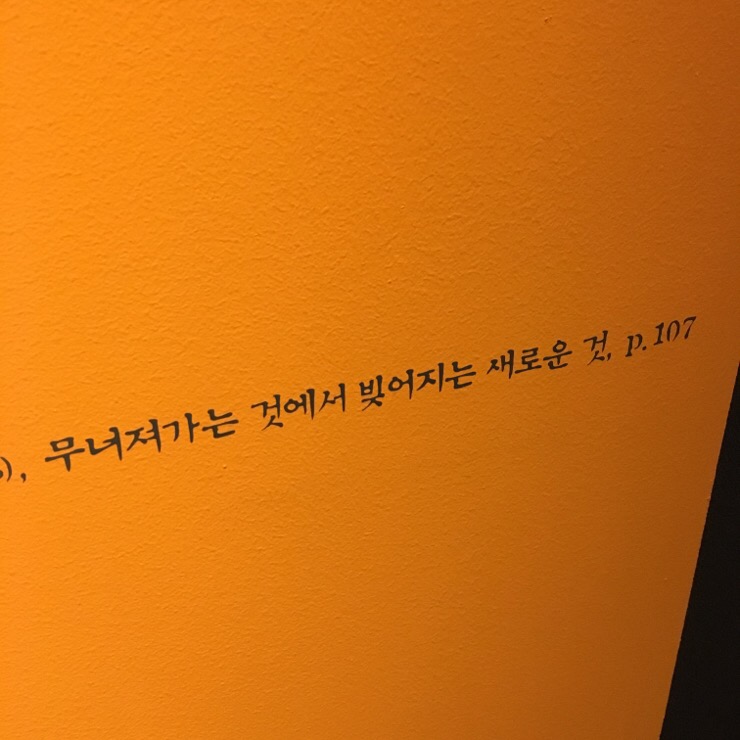 ), 무너져가는 것에서 빚어지는 새로운 것, p.107